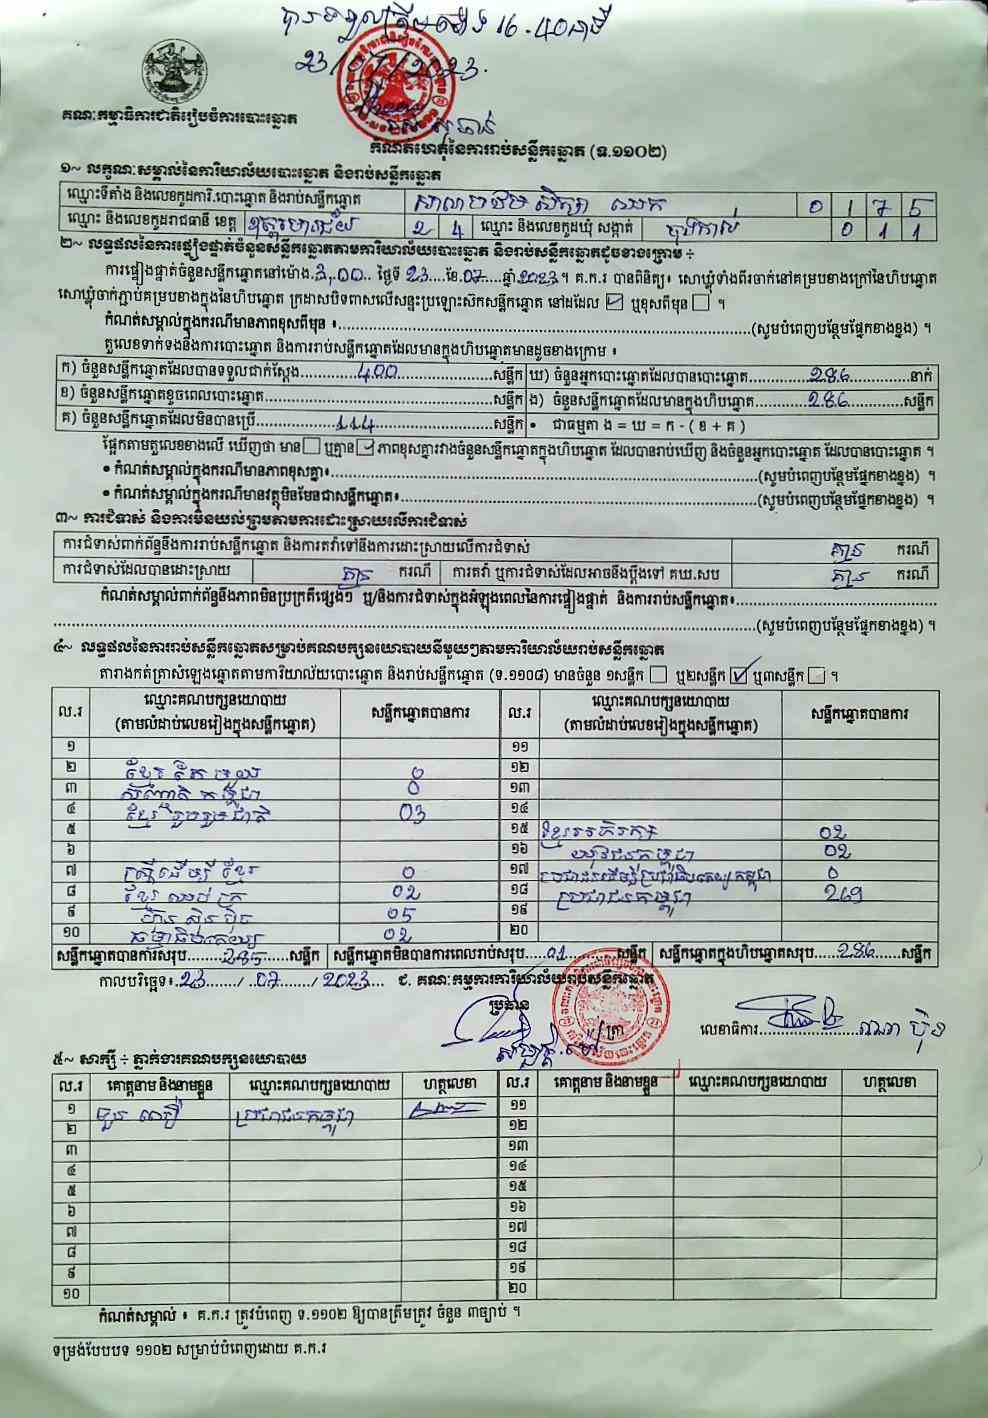 បានទទួលត្រឹមម៉ោង 16-40 នាទី
23/07/2023.
គណៈកម្មាធិការជាតិរៀបចំការបោះឆ្នោត
កំណត់ហេតុនៃការរាប់សន្លឹកឆ្នោត (ទ.១១០២)
១~ លក្ខណៈសម្គាល់នៃការិយាល័យបោះឆ្នោត និងរាប់សន្លឹកឆ្នោត
ឈ្មោះទីតាំង និងលេខកូដការិ.បោះឆ្នោត និងរាប់សន្លឹកឆ្នោត សាលាបឋមសិក្សា 0 1 7 5
ឈ្មោះ និងលេខកូដរាជធានី ខេត្ត ឧត្តរមានជ័យ 2 4 ឈ្មោះ និងលេខកូដឃុំ សង្កាត់ ចុងកាល់ 0 1 1
២~ លទ្ធផលនៃការផ្ទៀងផ្ទាត់ចំនួនសន្លឹកឆ្នោតតាមការិយាល័យបោះឆ្នោត និងរាប់សន្លឹកឆ្នោតដូចខាងក្រោម ÷
ការផ្ទៀងផ្ទាត់ចំនួនសន្លឹកឆ្នោតនៅម៉ោង.3,00.. ថ្ងៃទី 23....ខែ.07.....ឆ្នាំ.2023។ គ.ក.រ បានពិនិត្យ៖ សោឃ្លុំទាំងពីរចាក់នៅគម្របខាងក្រៅនៃហិបឆ្នោត
សោឃ្លុំចាក់ភ្ជាប់គម្របខាងក្នុងនៃហិបឆ្នោត ក្រដាសបិទពាសលើសន្ទះប្រឡោះស៊កសន្លឹកឆ្នោត នៅដដែល ☑ ឬខុសពីមុន ☐ ។
កំណត់សម្គាល់ក្នុងករណីមានភាពខុសពីមុន ៖..........(សូមបំពេញបន្ថែមផ្នែកខាងខ្នង) ។
តួលេខទាក់ទងនឹងការបោះឆ្នោត និងការរាប់សន្លឹកឆ្នោតដែលមានក្នុងហិបឆ្នោតមានដូចខាងក្រោម ៖
ក) ចំនួនសន្លឹកឆ្នោតដែលបានទទួលជាក់ស្តែង..........400..........សន្លឹក ឃ) ចំនួនអ្នកបោះឆ្នោតដែលបានបោះឆ្នោត..........286..........នាក់
ខ) ចំនួនសន្លឹកឆ្នោតខូចពេលបោះឆ្នោត..........សន្លឹក ង) ចំនួនសន្លឹកឆ្នោតដែលមានក្នុងហិបឆ្នោត..........286..........សន្លឹក
គ) ចំនួនសន្លឹកឆ្នោតដែលមិនបានប្រើ..........114..........សន្លឹក • ជាធម្មតា ង = ឃ = ក - ( ខ + គ )
ផ្អែកតាមតួលេខខាងលើ ឃើញថា មាន ☐ ឬគ្មាន ☑ ភាពខុសគ្នារវាងចំនួនសន្លឹកឆ្នោតក្នុងហិបឆ្នោត ដែលបានរាប់ឃើញ និងចំនួនអ្នកបោះឆ្នោត ដែលបានបោះឆ្នោត ។
• កំណត់សម្គាល់ក្នុងករណីមានភាពខុសគ្នា៖..........(សូមបំពេញបន្ថែមផ្នែកខាងខ្នង) ។
• កំណត់សម្គាល់ក្នុងករណីមានវត្ថុមិនមែនជាសន្លឹកឆ្នោត៖..........(សូមបំពេញបន្ថែមផ្នែកខាងខ្នង) ។
៣~ ការជំទាស់ និងការមិនយល់ព្រមតាមការដោះស្រាយលើការជំទាស់
ការជំទាស់ពាក់ព័ន្ធនឹងការរាប់សន្លឹកឆ្នោត និងការតវ៉ាទៅនឹងការដោះស្រាយលើការជំទាស់ គ្មាន ករណី
ការជំទាស់ដែលបានដោះស្រាយ គ្មាន ករណី ការតវ៉ា ឬការជំទាស់ដែលអាចនឹងប្តឹងទៅ គឃ.សប គ្មាន ករណី
កំណត់សម្គាល់ពាក់ព័ន្ធនឹងភាពមិនប្រក្រតីផ្សេងៗ ឬ/និងការជំទាស់ក្នុងអំឡុងពេលនៃការផ្ទៀងផ្ទាត់ និងការរាប់សន្លឹកឆ្នោត៖..........
..........(សូមបំពេញបន្ថែមផ្នែកខាងខ្នង) ។
៤~ លទ្ធផលនៃការរាប់សន្លឹកឆ្នោតសម្រាប់គណបក្សនយោបាយនីមួយៗតាមការិយាល័យរាប់សន្លឹកឆ្នោត
តារាងកត់ត្រាសំឡេងឆ្នោតតាមការិយាល័យបោះឆ្នោត និងរាប់សន្លឹកឆ្នោត (ទ.១១០៨) មានចំនួន ១សន្លឹក ☐ ឬ២សន្លឹក ☑ ឬ៣សន្លឹក ☐ ។
ល.រ ឈ្មោះគណបក្សនយោបាយ (តាមលំដាប់លេខរៀងក្នុងសន្លឹកឆ្នោត) សន្លឹកឆ្នោតបានការ ល.រ ឈ្មោះគណបក្សនយោបាយ (តាមលំដាប់លេខរៀងក្នុងសន្លឹកឆ្នោត) សន្លឹកឆ្នោតបានការ
១ ១១
២ ខ្មែរតែមួយ 0 ១២
៣ សញ្ជាតិកម្ពុជា 0 ១៣
៤ ខ្មែររួបរួមជាតិ 03 ១៤
៥ ១៥ ខ្មែរអភិរក្ស 02
៦ ១៦ យុវជនកម្ពុជា 02
៧ ស្ត្រីដើម្បីខ្មែរ 0 ១៧ ប្រជាជនដើម្បីប្រជាធិបតេយ្យកម្ពុជា 0
៨ ខ្មែរឈប់ក្រ 02 ១៨ ប្រជាជនកម្ពុជា 269
៩ ហ្វ៊ុនស៊ិនប៉ិច 05 ១៩
១០ ធម្មាធិបតេយ្យ 02 ២០
សន្លឹកឆ្នោតបានការសរុប.......285.......សន្លឹក សន្លឹកឆ្នោតមិនបានការពេលរាប់សរុប....01.......សន្លឹក សន្លឹកឆ្នោតក្នុងហិបឆ្នោតសរុប......286......សន្លឹក
កាលបរិច្ឆេទ៖.23....../..07....../ 2023.... ជ. គណៈកម្មការការិយាល័យរាប់សន្លឹកឆ្នោត
ប្រធាន
ត្រា លេខាធិការ..........
៥~ សាក្សី ÷ ភ្នាក់ងារគណបក្សនយោបាយ
ល.រ គោត្តនាម និងនាមខ្លួន ឈ្មោះគណបក្សនយោបាយ ហត្ថលេខា ល.រ គោត្តនាម និងនាមខ្លួន ឈ្មោះគណបក្សនយោបាយ ហត្ថលេខា
១ ប្រជាជនកម្ពុជា ១១
២ ១២
៣ ១៣
៤ ១៤
៥ ១៥
៦ ១៦
៧ ១៧
៨ ១៨
៩ ១៩
១០ ២០
កំណត់សម្គាល់ ៖ គ.ក.រ ត្រូវបំពេញ ទ.១១០២ ឱ្យបានត្រឹមត្រូវ ចំនួន ៣ច្បាប់ ។
ទម្រង់បែបបទ ១១០២ សម្រាប់បំពេញដោយ គ.ក.រ